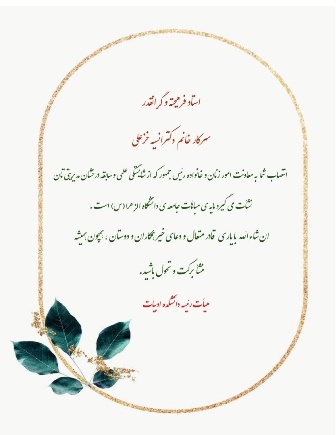 استاد فرهیخته و گرانقدر
سرکار خانم دکتر انسیه خزعلی
انتصاب شما به معاونت امور زنان و خانواده رئیس جمهور که از شایستگی علمی و سابقه درخشان مدیریتی تان
نشات می گیرد مایه ی مباهات جامعه ی دانشگاه الزهرا(س) است .
ان شاء الله با یاری قادر متعال و دعای خیر همکاران و دوستان ، همچون همیشه
منشا برکت و تحول باشید.
هیات رئیسه دانشکده ادبیات